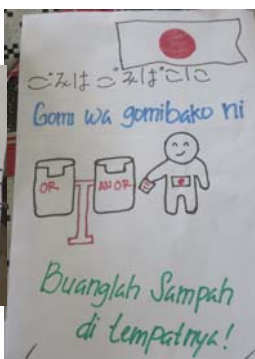 ごみはごみばこに
Gomi wa gomibako ni
OR
AN OR
Buanglah Sampah
di tempatnya!